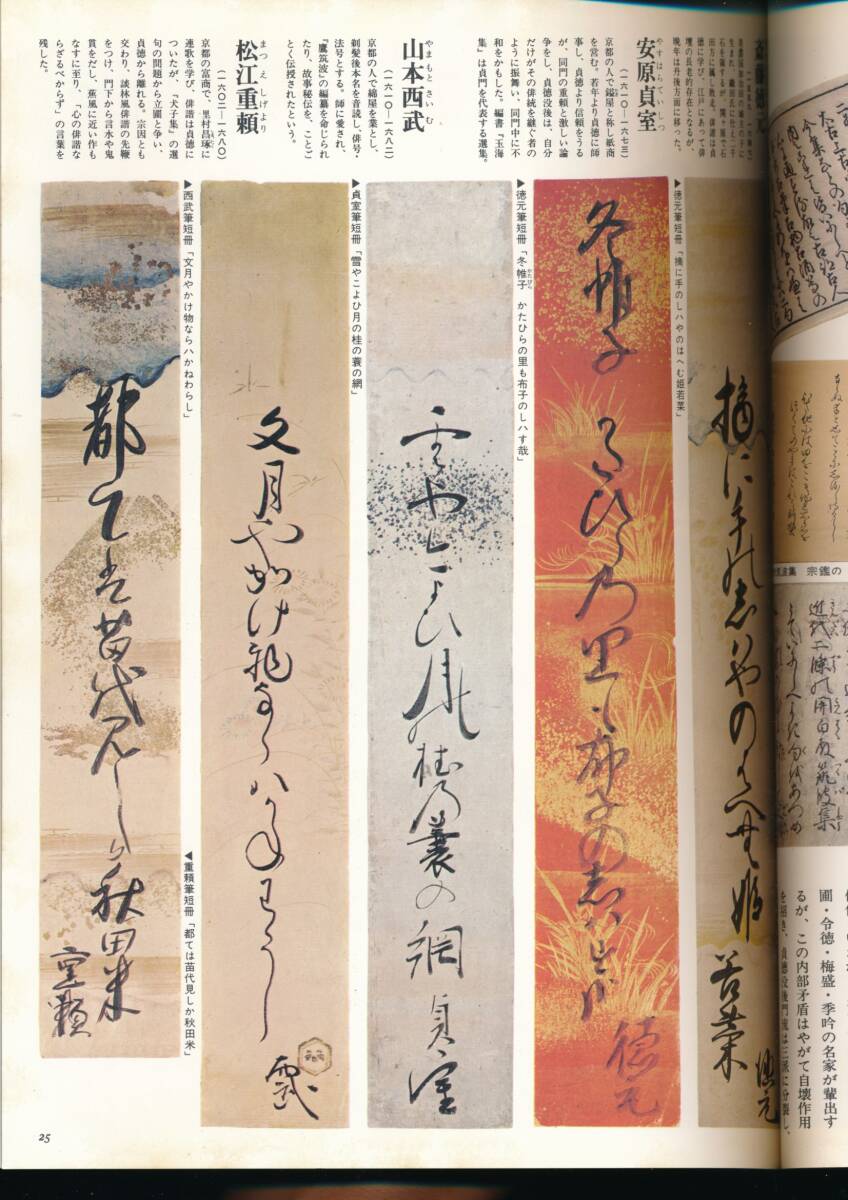 安原貞室
やすはらていしつ
(一六一〇―一六七三)
京都の人で鎰屋と称し紙商
を営む。若年より貞徳に師
事し、貞徳より信頼をうる
が、同門の重頼と激しい論
争をし、貞徳没後は、自分
だけがその俳統を継ぐ者の
ように振舞い、同門中に不
和をかもした。編書『玉海
集』は貞門を代表する選集。
山本西武
やまもとさいむ
(一六一〇―一六八二)
京都の人で綿屋を業とし、
剃髪後本名を音読し、俳号・
法号とする。師に愛され、
『鷹筑波』の編纂を命じられ
たり、故事秘伝を、ことご
とく伝授されたという。
松江重頼
まつえしげより
(一六〇二―一六八〇)
京都の富商で、里村昌琢に
連歌を学び、俳諧は貞徳に
ついたが、『犬子集』の選
句の問題から立圃と争い、
貞徳から離れる。宗因とも
交わり、談林風俳諧の先鞭
をつけ、門下から言水や鬼
貫をだし、蕉風に近い作も
なすに至り、「心の俳諧な
らざるべからず」の言葉を
残した。
▶徳元筆短冊「摘に手のしハやのはへむ姫若菜」
▶徳元筆短冊「冬帷子 かたひらの里も布子のしハす哉」
かたびら
▶貞室筆短冊「雪やこよひ月の桂の蓑の網」
▶西武筆短冊「文月やかけ物ならハかねわらし」
◀重頼筆短冊「都ては苗代見しか秋田米」
摘に手のしハやのはへむ姫若菜
徳元
冬帷子 かたひらの里も布子のしハす哉
徳元
雪やこよひ月の桂乃蓑の網 貞室
文月やかけ物ならハかねわらし
西武
都ては苗代見しか秋田米
重頼
25
宗鑑の
圃・令徳・梅盛・季吟の名家が輩出す
るが、この内部矛盾はやがて自壊作用
を招き、貞徳没後門流は三派に分裂し、